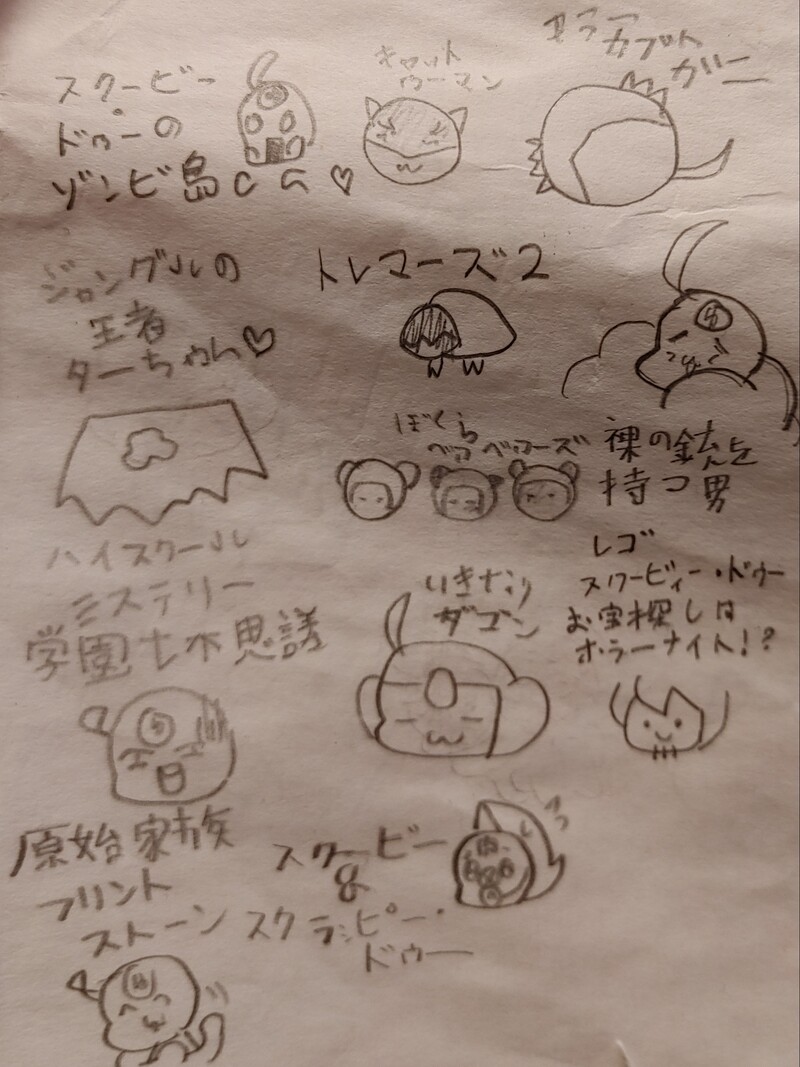 スクービー
・
ドゥーの
ゾンビ島
♡
キャット
ウーマン
キラー
カブト
ガニ
ジャングルの
王者
ターちゃん♡
トレマーズ2
ぼくら
ベアベアーズ
裸の銃を
持つ男
ハイスクール
ミステリー
学園七不思議
いきなり
ダゴン
レゴ
スクービィー・ドゥー
お宝探しは
ホラーナイト!?
原始家族
フリント
ストーン
スクービー
&
スクラッピー・
ドゥー